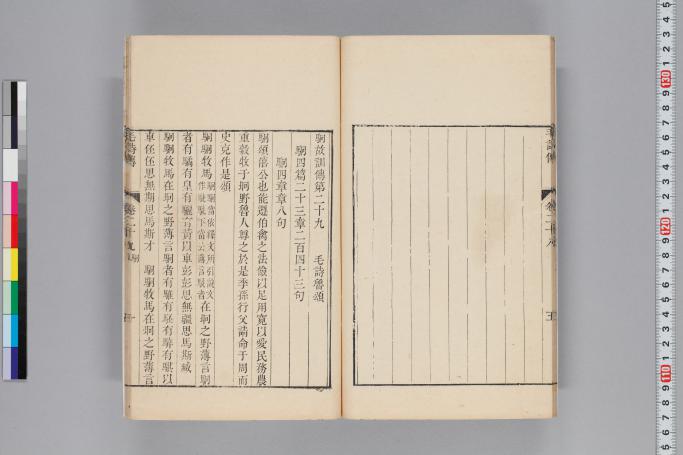 駉故訓傳第二十九　毛詩魯頌
駉四篇二十三章二百四十三句
駉四章章八句
駉頌僖公也能遵伯禽之法儉以足用寬以愛民務農
重穀牧于坰野魯人尊之於是季孫行父請命于周而
史克作是頌
駉駉牧馬
在坰之野薄言駉
者有驈有皇有驪有黃以車彭彭思無疆思馬斯臧
駉駉牧馬在坰之野薄言駉者有騅有駓有騂有騏以
車伾伾思無期思馬斯才　駉駉牧馬在坰之野薄言
毛詩傳
卷二十九
駉
一
毛詩傳
五